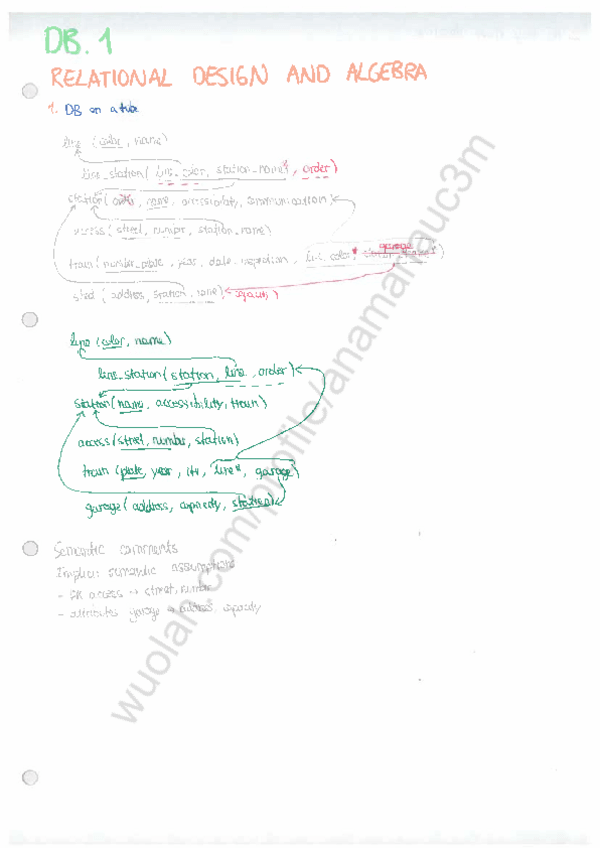 DB. 1
RELATIONAL DESIGN AND ALGEBRA
1. DB on a tube
line (color, name)
line_station( line_color, station_name, order)
station( name, accessibility, communication)
access (street, number, station_name)
train(number_plate, year, date_inspection, line_color* garage
shed (address, station_name)
line (color, name)
line_station( station, line, order)
station( name, accessibility, train)
access(street, number, station)
train (plate, year, itv, line*, garage)
garage( address, capacity, station)
Semantic comments
Implicit semantic assumptions
- PK access → street, number
- attributes garage → address, capacity
wuolah.com/profile/anamanauc3m